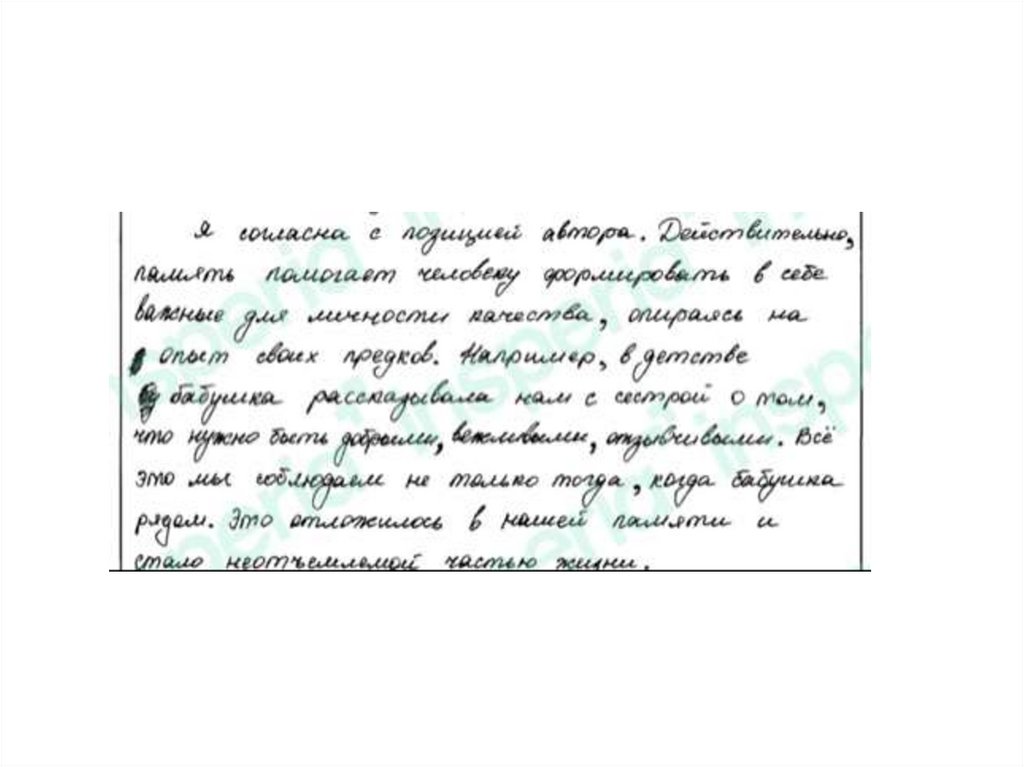 Я согласна с позицией автора. Действительно,
память помогает человеку формировать в себе
важные для личности качества, опираясь на
опыт своих предков. Например, в детстве
бабушка рассказывала нам с сестрой о том,
что нужно быть добрыми, вежливыми, отзывчивыми. Всё
это мы соблюдаем не только тогда, когда бабушка
рядом. Это отложилось в нашей памяти и
стало неотъемлемой частью жизни.